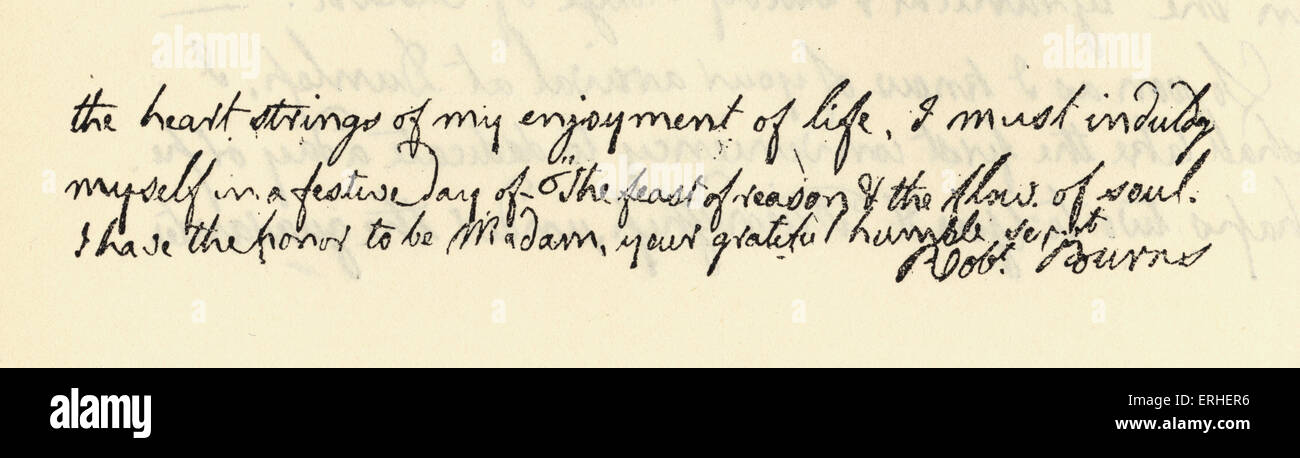 the heart strings of my enjoyment of life, I must indulge
myself in a festive day of "The feast of reason & the flow of soul.
I have the honor to be Madam, your grateful humble servt
Robt. Burns
alamy
alamy
Image ID: ERHER6
www.alamy.com